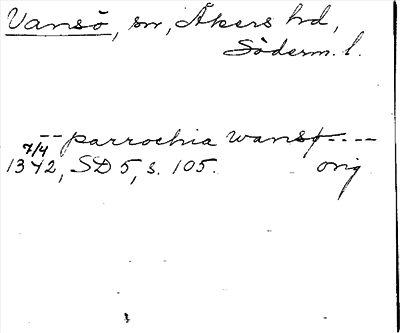 Vansö, sn, Åkers hd,
Söderm. l.
-- parrochia wansø ----
7/4
1342, SD 5, s. 105. orig